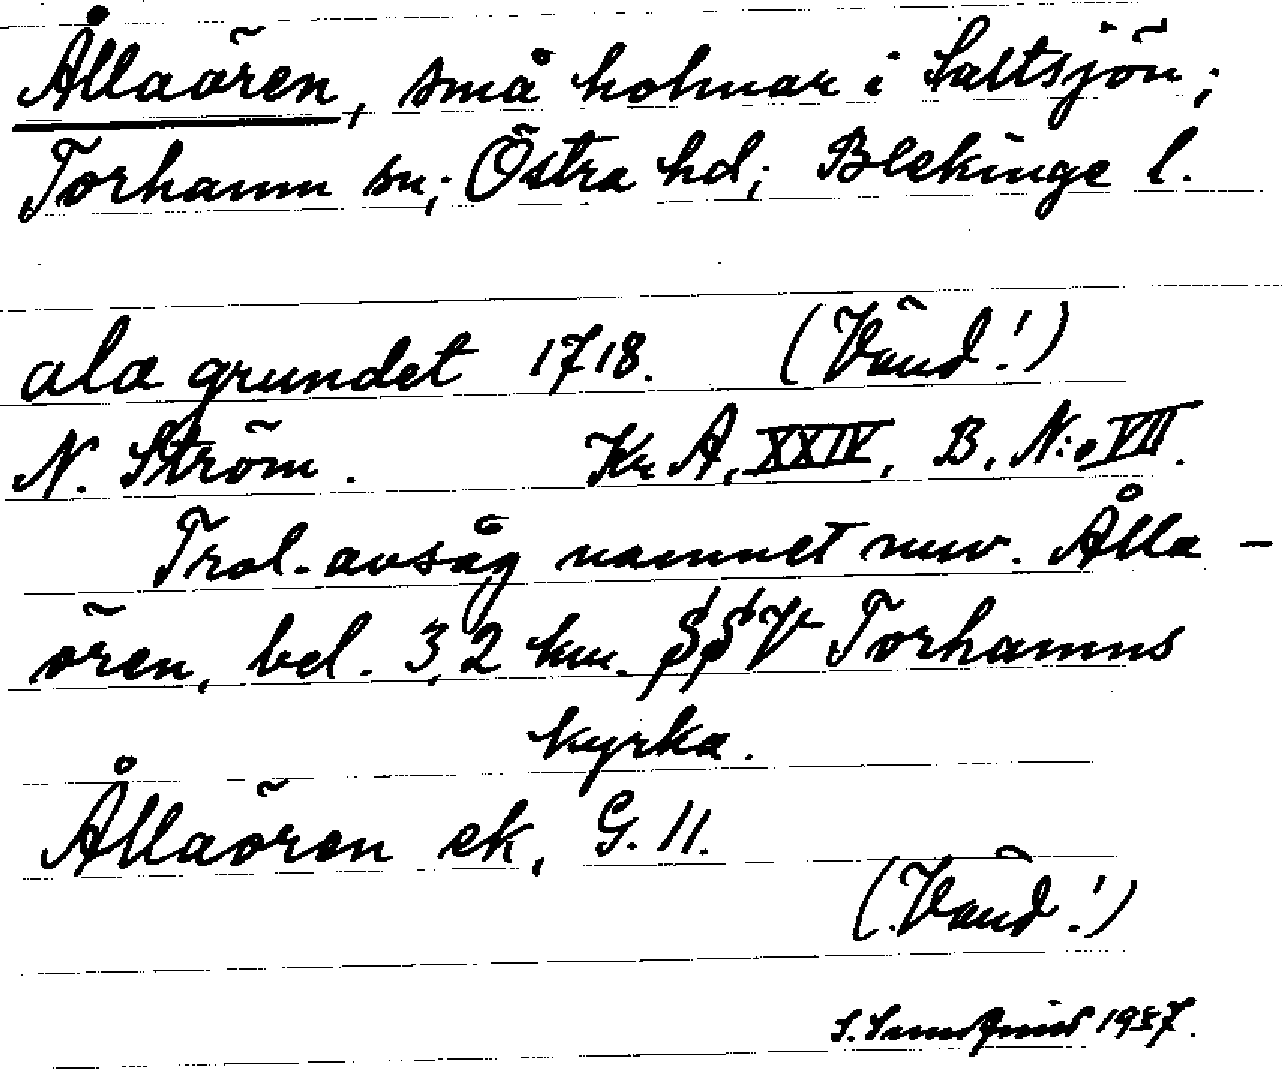 Ållaören, små holmar i Saltsjön;
Torhamn sn; Östra hd; Blekinge l.
ala grundet 1718. (Vänd!)
N. Ström. Kr A, XXIV, B. N:o VII.
Trol. avsåg namnet nuv. Ålla-
ören, bel. 3,2 km. SSV Torhamns
kyrka.
Ållaören ek, G. 11.
(Vänd!)
S. 1957.